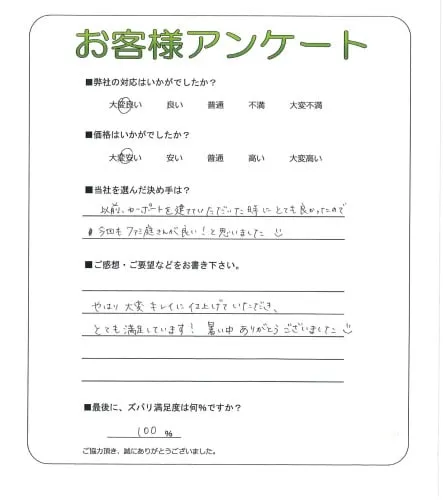 お客様アンケート
■弊社の対応はいかがでしたか?
大変良い 良い 普通 不満 大変不満
■価格はいかがでしたか?
大変安い 安い 普通 高い 大変高い
■当社を選んだ決め手は?
以前、カーポートを建てていただいた時にとても良かったので
今回もファミ庭さんが良い!と思いました
■ご感想・ご要望などをお書き下さい。
やはり大変キレイに仕上げていただき、
とても満足しています! 暑い中ありがとうございました
■最後に、ズバリ満足度は何%ですか?
100 %
ご協力頂き、誠にありがとうございました。